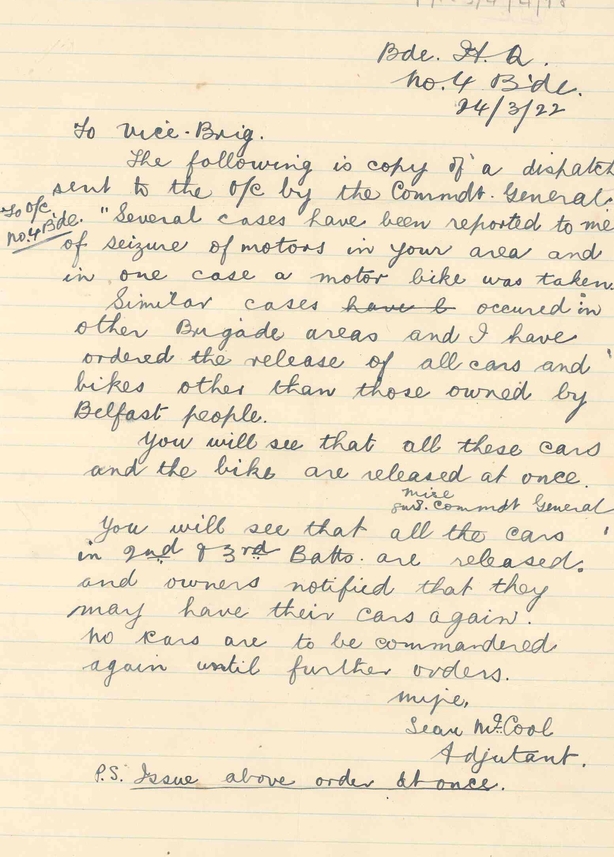 Bde. H. Q.
No. 4 B'de.
24/3/22
To Vice-Brig.
The following is copy of a dispatch
sent to the O/C by the Commdt. General.
To O/C
No. 4 B'de.
"Several cases have been reported to me
of seizure of motors in your area and
in one case a motor bike was taken.
Similar cases have b occured in
other Brigade areas and I have
ordered the release of all cars and
bikes other than those owned by
Belfast people.
You will see that all these cars
and the bike are released at once.
Mise
Commdt General
You will see that all the cars
in 2nd & 3rd Batts. are released.
and owners notified that they
may have their cars again.
No cars are to be commandered
again until further orders.
Mise,
Sean McCool
Adjutant.
P.S. Issue above order at once.